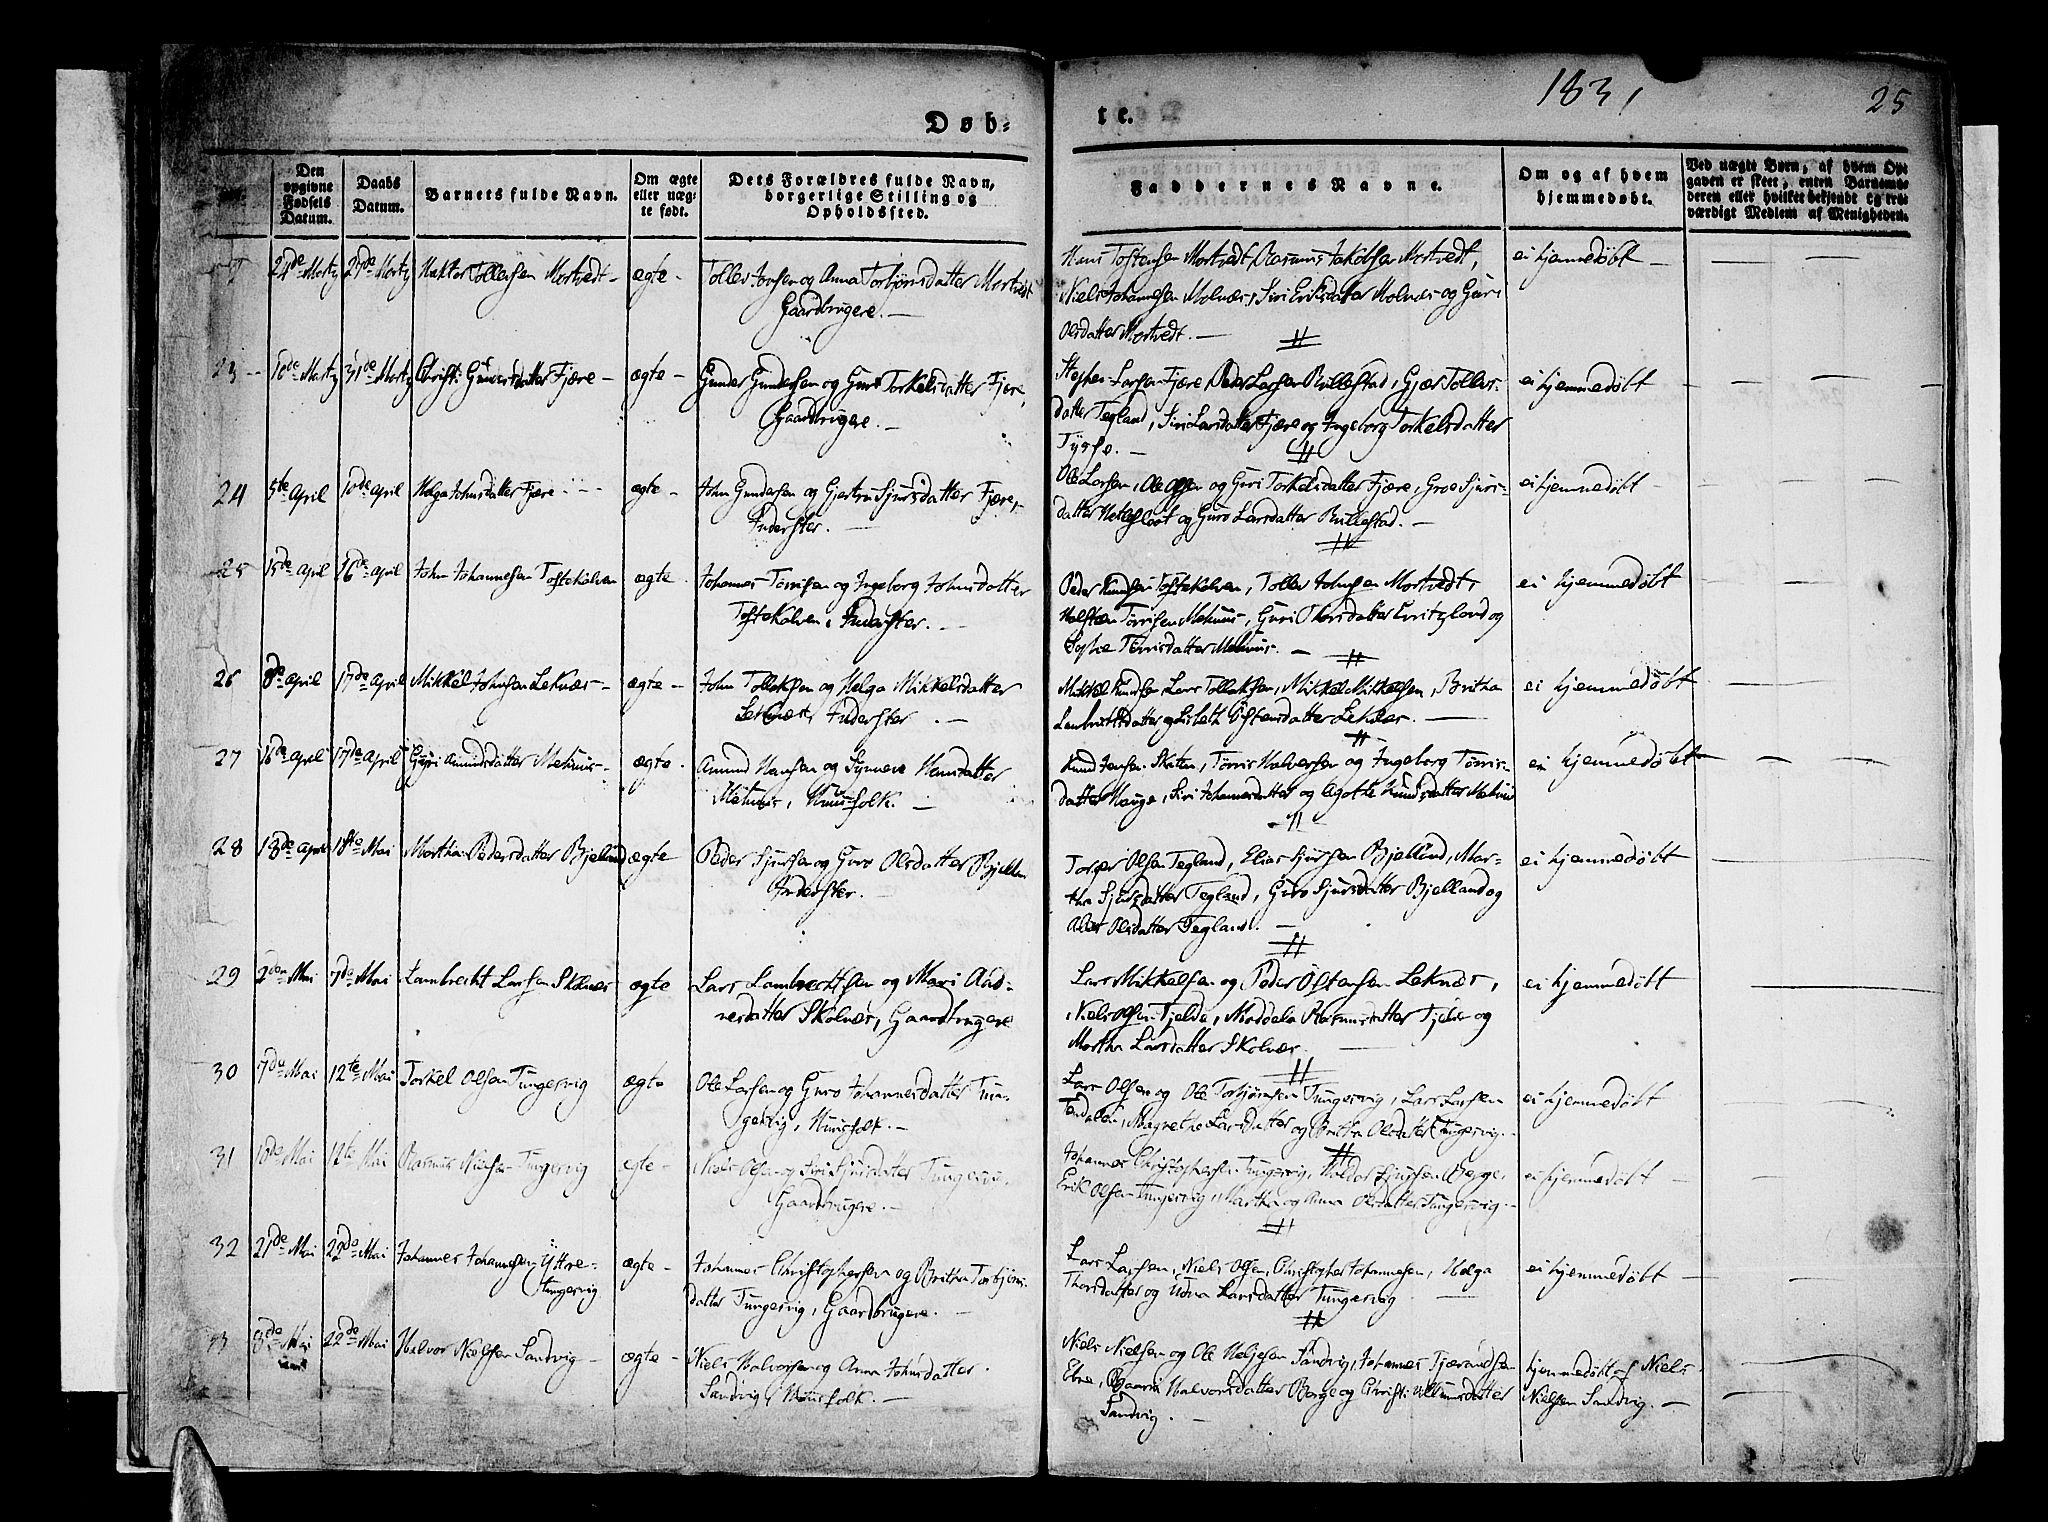 1831
25
Døb-
te.
Den opgivne Fødsels Datum.
Daabs Datum.
Barnets fulde Navn.
Om ægte eller uæg-te født.
Dets Forældres fulde Navn, borgerlige Stilling og Opholdssted.
Faddernes Navne.
Om og af hvem hjemmedøbt.
Ved uægte Børn, af hvem Op-gaven er skeet, enten Barnemo-deren eller hvilket bekjendt og tro-værdigt Medlem af Menigheden.
24de Martz 27de Martz Tollefsen Mortvedt - ægte - Tollev Jonsen og Anna Torbjørnsdatter Mortvedt
Gaardbrugere. -
Hans Tostensen Mortvedt, Rasmus Jakobsen Mortvedt, ei hjemmedøbt -
Niels Johannesen Molnær, Siri Eriksdatter Molnær og Guri
Olsdatter Mortvedt. -
23 16de Martz 31de Martz Christi Gundersdatter Fjære - ægte - Gunder Gundersen og Guri Torkelsdatter Fjære,
Gaardbrugere. -
Larsen Fjære, Peder Larsen Bullestad, Gjær Tollevs- ei hjemmedøbt
datter Tegland, Siri Larsdatter Fjære og Ingeborg Torkelsdatter
Tysse. -
24 5te April 10de April Helga Johnsdatter Fjære - ægte - John Gundersen og Gjertru Sjursdatter Fjære,
Inderster. -
Ole Larsen, Ole Olsen og Guri Torkelsdatter Fjære, Groe Sjurs- ei hjemmedøbt -
datter og Guro Larsdatter Bullestad. -
25 15de April 16de April John Johannesen Tostekalven ægte Johannes Tørrisen og Ingeborg Johnsdatter
Tostekalven, Inderster. -
Peder Knudsen Tostekalven, Tollev Johnsen Mortvedt, ei hjemmedøbt
Tørrisen Mehuus, Guri og
Tørrisdatter Mehuus. -
26 8de April 17de April Mikkel Johnsen Leknær - ægte - John Tolleksen og Helga Mikkelsdatter
Leknær, Inderster. -
Mikkel Knudsen, Lars Tolleksen, Mikkel Mikkelsen, Britha ei hjemmedøbt
Lambrectsdatter og Lisbeth Østensdatter Leknær. -
27 16de April 17de April Guri Amundsdatter Mehuus - ægte - Amund Hansen og Synneve Hansdatter
Mehuus, Huusfolk. -
Knud Jensen Skaten, Tørris Halversen og Ingeborg Tørris- ei hjemmedøbt
datter Hauge, Siri Johannesdatter og Agathe Knudsdatter Mehuus
28 13de April 1ste Mai Martha Pedersdatter Bjelland ægte Peder Sjursen og Guro Olsdatter Bjelland
Inderster. -
Torger Olsen Tegland, Elias Sjursen Bjelland, Mar- ei hjemmedøbt
tha Sjursdatter Tegland, Guro Sjursdatter Bjelland og
Olsdatter Tegland. -
29 2den Mai 7de Mai Lambrecht Larsen Skolnær ægte Lars Lambrechtsen og Mari Aad-
nesdatter Skolnær, Gaardbrugere
Lars Mikkelsen og Peder Østensen Leknær, ei hjemmedøbt
Niels Olsen Tjelde, Maddela Rasmusdatter Tjelde og
Martha Larsdatter Skolnær.
30 7de Mai 12te Mai Torkel Olsen Tungesvig ægte Ole Larsen og Guro Johannesdatter Tun-
gesvig, Huusfolk. -
Lars Olsen og Ole Torbjørnsen Tungesvig, Lars Larsen ei hjemmedøbt
Magrethe Larsdatter og Britha Olsdatter Tungesvig. -
31 10de Mai 12te Mai Rasmus Nielsen Tungesvig ægte - Niels Olsen og Siri Sjursdatter Tungesvig,
Gaardbrugere. -
Johannes Christophersen Tungesvig, Haldor Sjursen Berge, ei hjemmedøbt -
Erik Olsen Tungesvig, Martha og Anna Olsdatter Tungesvig. -
32 21de Mai 22de Mai Johannes Johannesen Yttre- ægte - Johannes Christophersen og Britha Torbjørns-
Tungesvig
datter Tungesvig, Gaardbrugere. -
Lars Larsen, Niels Olsen, Christopher Johannesen, Helga ei hjemmedøbt -
Thorsdatter og Udna Larsdatter Tungesvig
33 8de Mai 22de Mai Halvor Nielsen Sandvig - ægte - Niels Halvorsen og Anna Johnsdatter
Sandvig, Huusfolk. -
Niels Nielsen og Ole Heljesen Sandvig, Johannes Tjærandsen hjemmedøbt af Niels
Ebne, Halvorsdatter Berge og Christi Villumsdatter Nielsen Sandvig. -
Sandvig. -